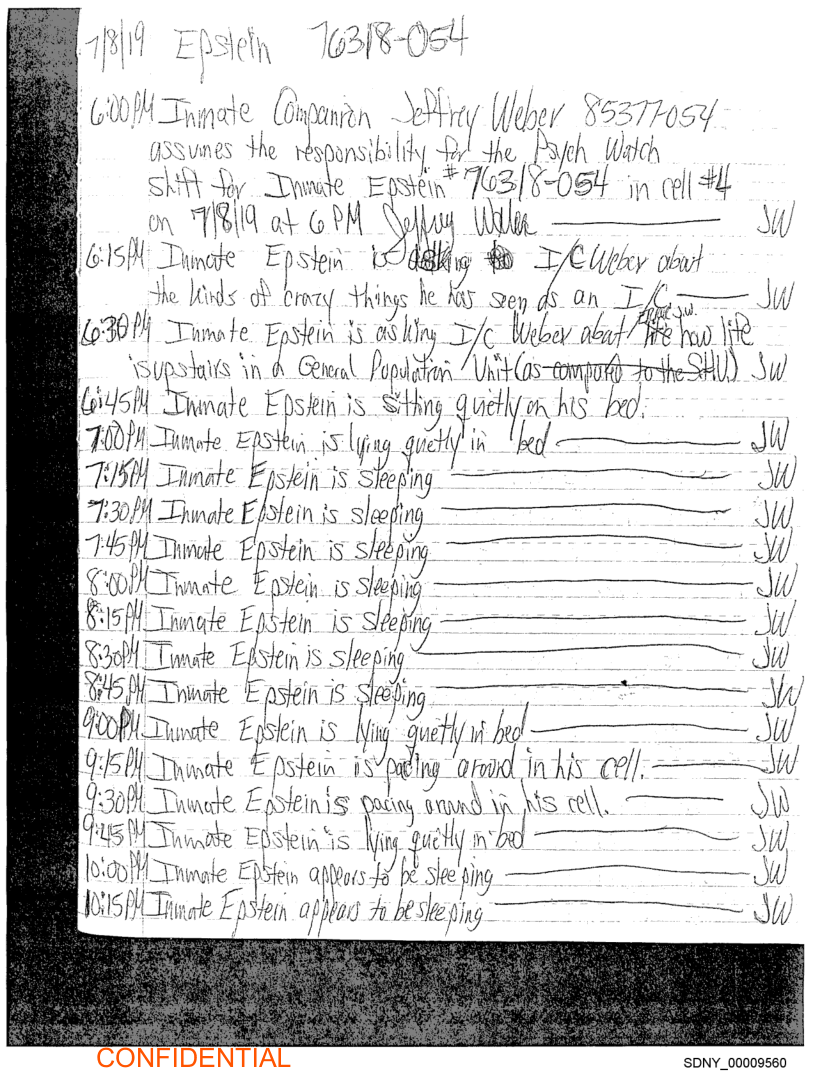 7/8/19 Epstein 76318-054
6:00PM Inmate Companion Jeffrey Weber 85377-054
assumes the responsibility for the Psych Watch
shift for Inmate Epstein #76318-054 in cell #4
on 7/8/19 at 6 PM Jeffrey Weber JW
6:15PM Inmate Epstein is asking I/C Weber about
the kinds of crazy things he has seen as an I/C. JW
Error J.W.
6:30 PM Inmate Epstein is asking I/C Weber about life how life
is upstairs in a General Population Unit (as compared to the SHU) JW
6:45PM Inmate Epstein is sitting quetly on his bed.
7:00PM Inmate Epstein is lying quetly in bed JW
7:15PM Inmate Epstein is sleeping JW
7:30PM Inmate Epstein is sleeping JW
7:45PM Inmate Epstein is sleeping JW
8:00PM Inmate Epstein is sleeping JW
8:15PM Inmate Epstein is sleeping JW
8:30PM Inmate Epstein is sleeping JW
8:45PM Inmate Epstein is sleeping JW
9:00PM Inmate Epstein is lying quetly in bed JW
9:15PM Inmate Epstein is pacing around in his cell. JW
9:30PM Inmate Epstein is pacing around in his cell. JW
9:45PM Inmate Epstein is lying quetly in bed JW
10:00PM Inmate Epstein appears to be sleeping JW
10:15PM Inmate Epstein appears to be sleeping JW
CONFIDENTIAL
SDNY_00009560